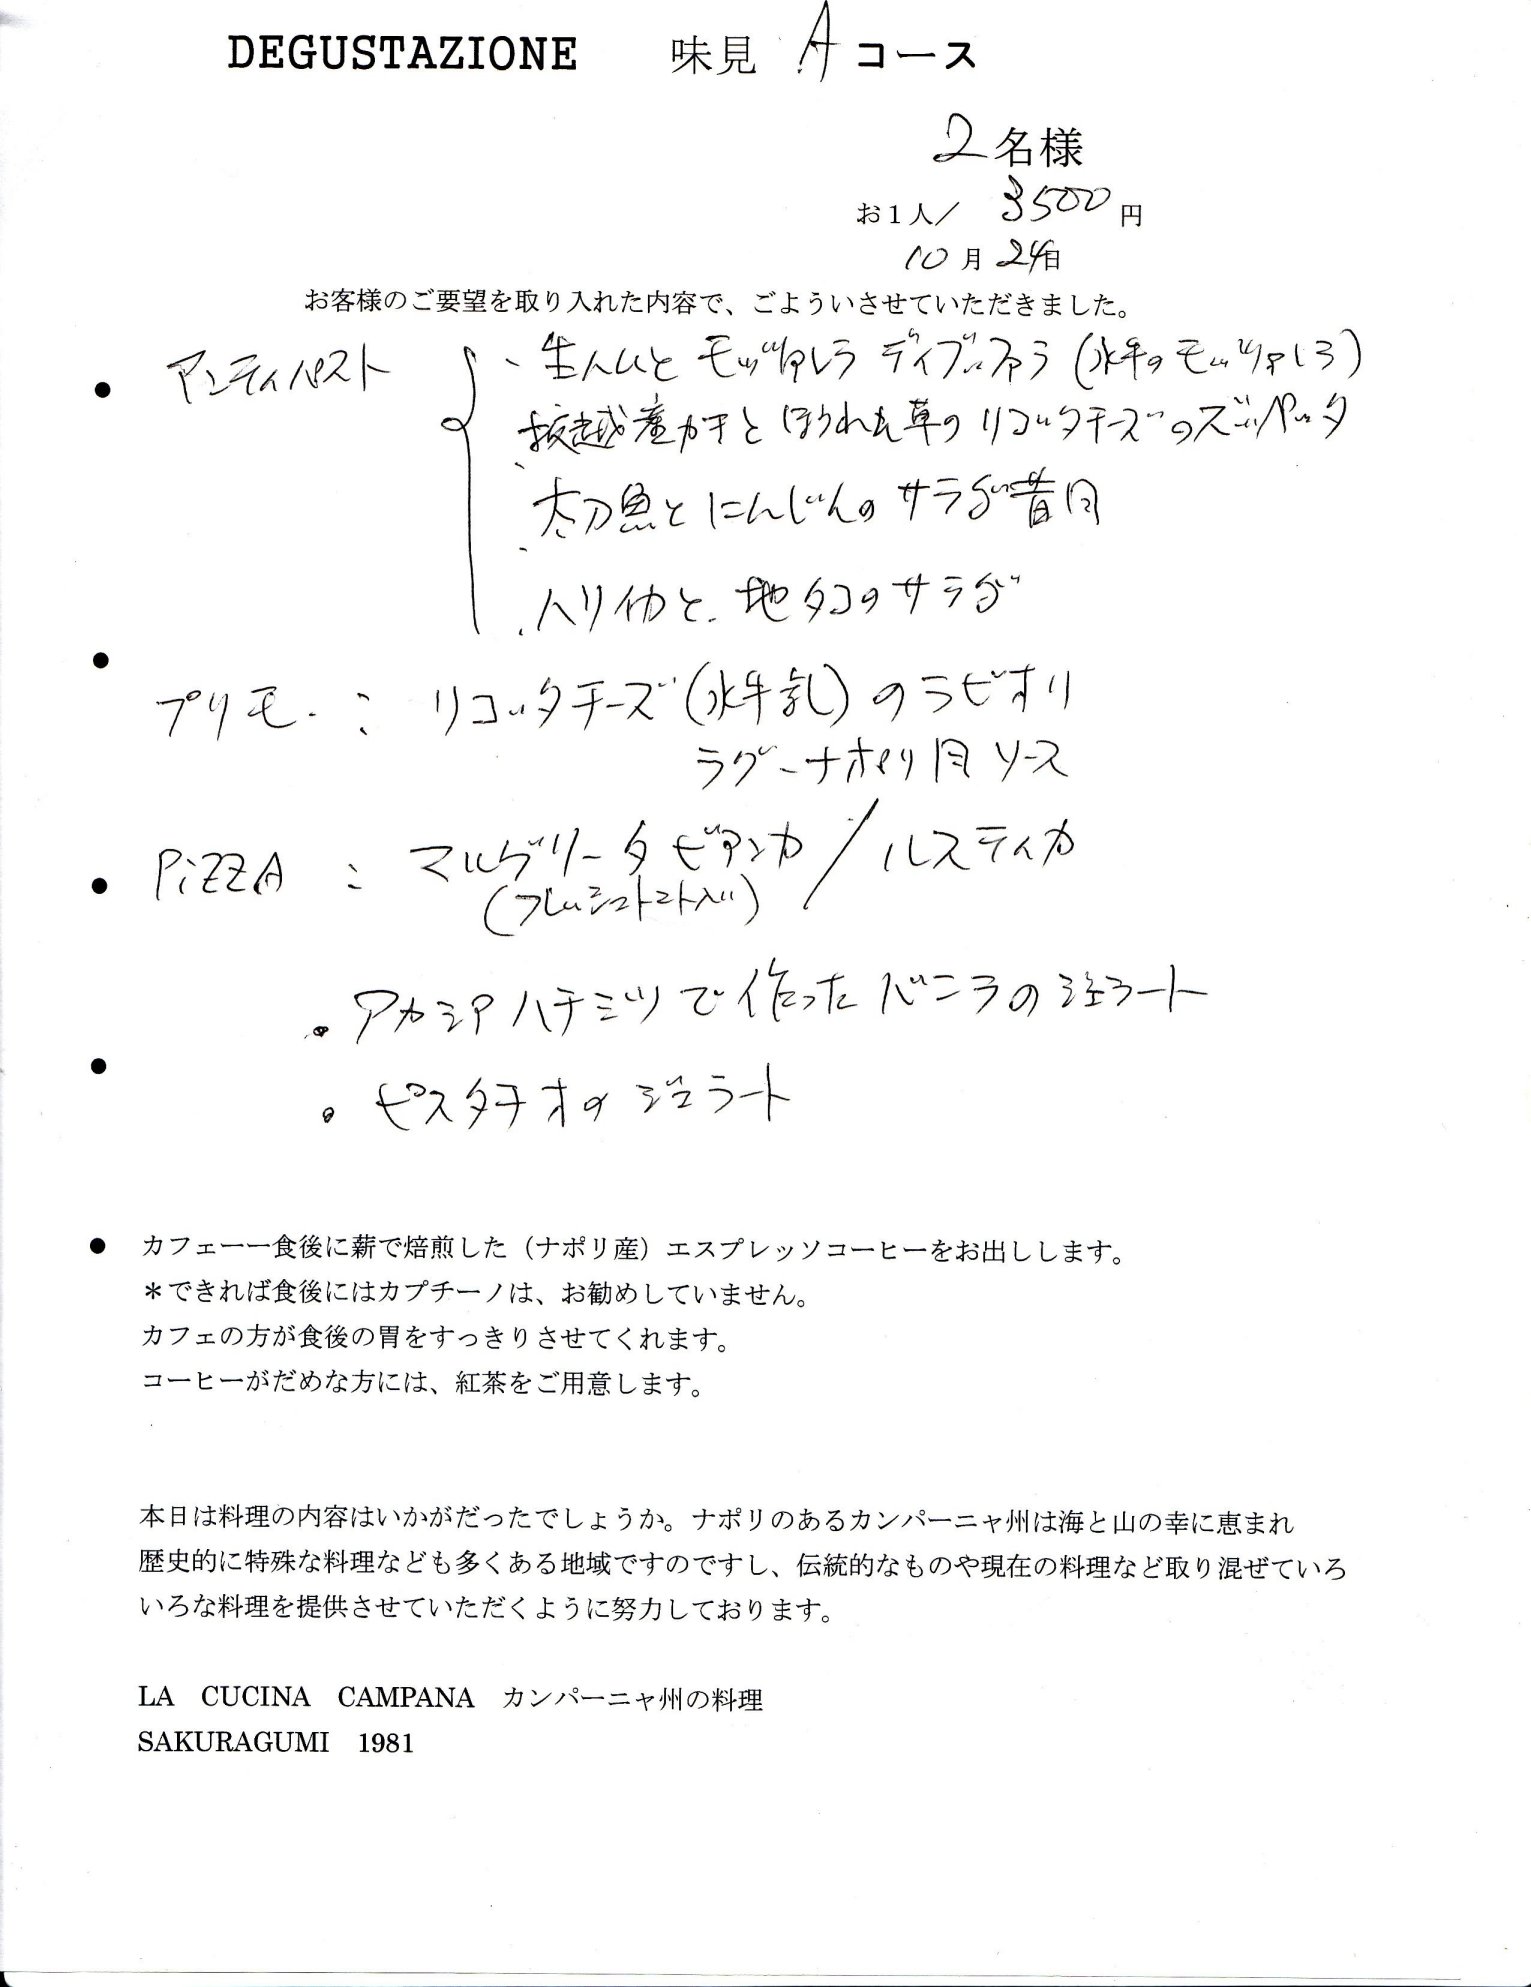 DEGUSTAZIONE 味見 A コース
2名様
お1人／ 3500円
10月24日
お客様のご要望を取り入れた内容で、ごよういさせていただきました。
● アンティパスト
・生ハムと モッツァレラ ディブッファラ (水牛のモッツァレラ)
坂越産カキと ほうれん草の リコッタチーズのズッパッタ
・太刀魚と にんじんの サラダ昔風
・ハリイカと 地タコのサラダ
● プリモ : リコッタチーズ(水牛乳)のラビオリ
ラグーナポリ風ソース
● PiZZA : マルゲリータ ビアンカ / ルスティカ
(フレッシュトマト入り)
・アカシアハチミツで作った バニラのジェラート
●
・ピスタチオの ジェラート
● カフェーー食後に薪で焙煎した（ナポリ産）エスプレッソコーヒーをお出しします。
＊できれば食後にはカプチーノは、お勧めしていません。
カフェの方が食後の胃をすっきりさせてくれます。
コーヒーがだめな方には、紅茶をご用意します。
本日は料理の内容はいかがだったでしょうか。ナポリのあるカンパーニャ州は海と山の幸に恵まれ
歴史的に特殊な料理なども多くある地域ですのですし、伝統的なものや現在の料理など取り混ぜていろ
いろな料理を提供させていただくように努力しております。
LA CUCINA CAMPANA カンパーニャ州の料理
SAKURAGUMI 1981